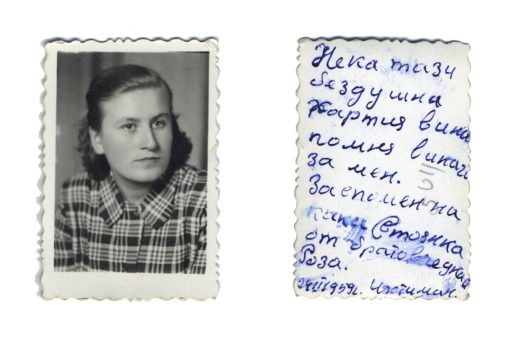 Нека тази
бездушна
хартия вина
помня винаги
за мен.
За спомен на
кака Стоянка
от братовчедка
Роза.
1959г. Ихтиман.